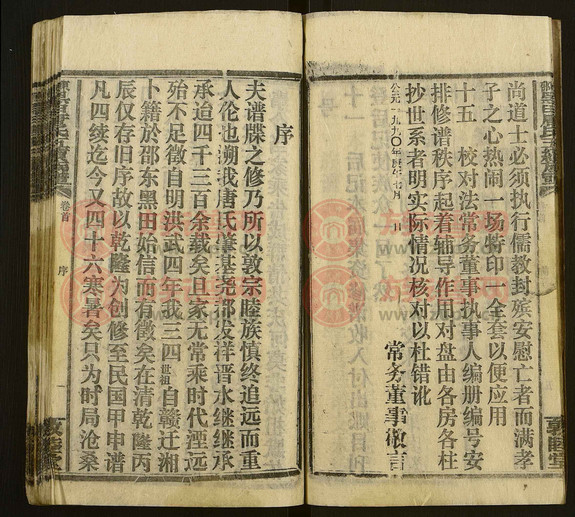 尚道士必须执行儒教封殡安慰亡者而满孝
子之心热闹一场特印一全套以便应用
十五 校对法常务董事执事人编册编号安
排修谱秩序起着辅导作用对盘由各房各柱
抄世系者明实际情况核对以杜错讹
常务董事徵言
公元一九九〇年庚午七月 日
序
夫谱牒之修乃所以敦宗睦族慎终追远而重
人伦也溯我唐氏肇基尧都发祥晋水继继承
承迨四千三百余载矣且家无常乘时代湮远
殆不足徵自明洪武四年我三四世祖自赣迁湘
卜籍於邵东黑田始信而有徵矣在清乾隆丙
辰仅存旧序故以乾隆为创修至民国甲申谱
凡四续迄今又四十六寒暑矣只为时局沧桑
卷首
序
敦睦堂